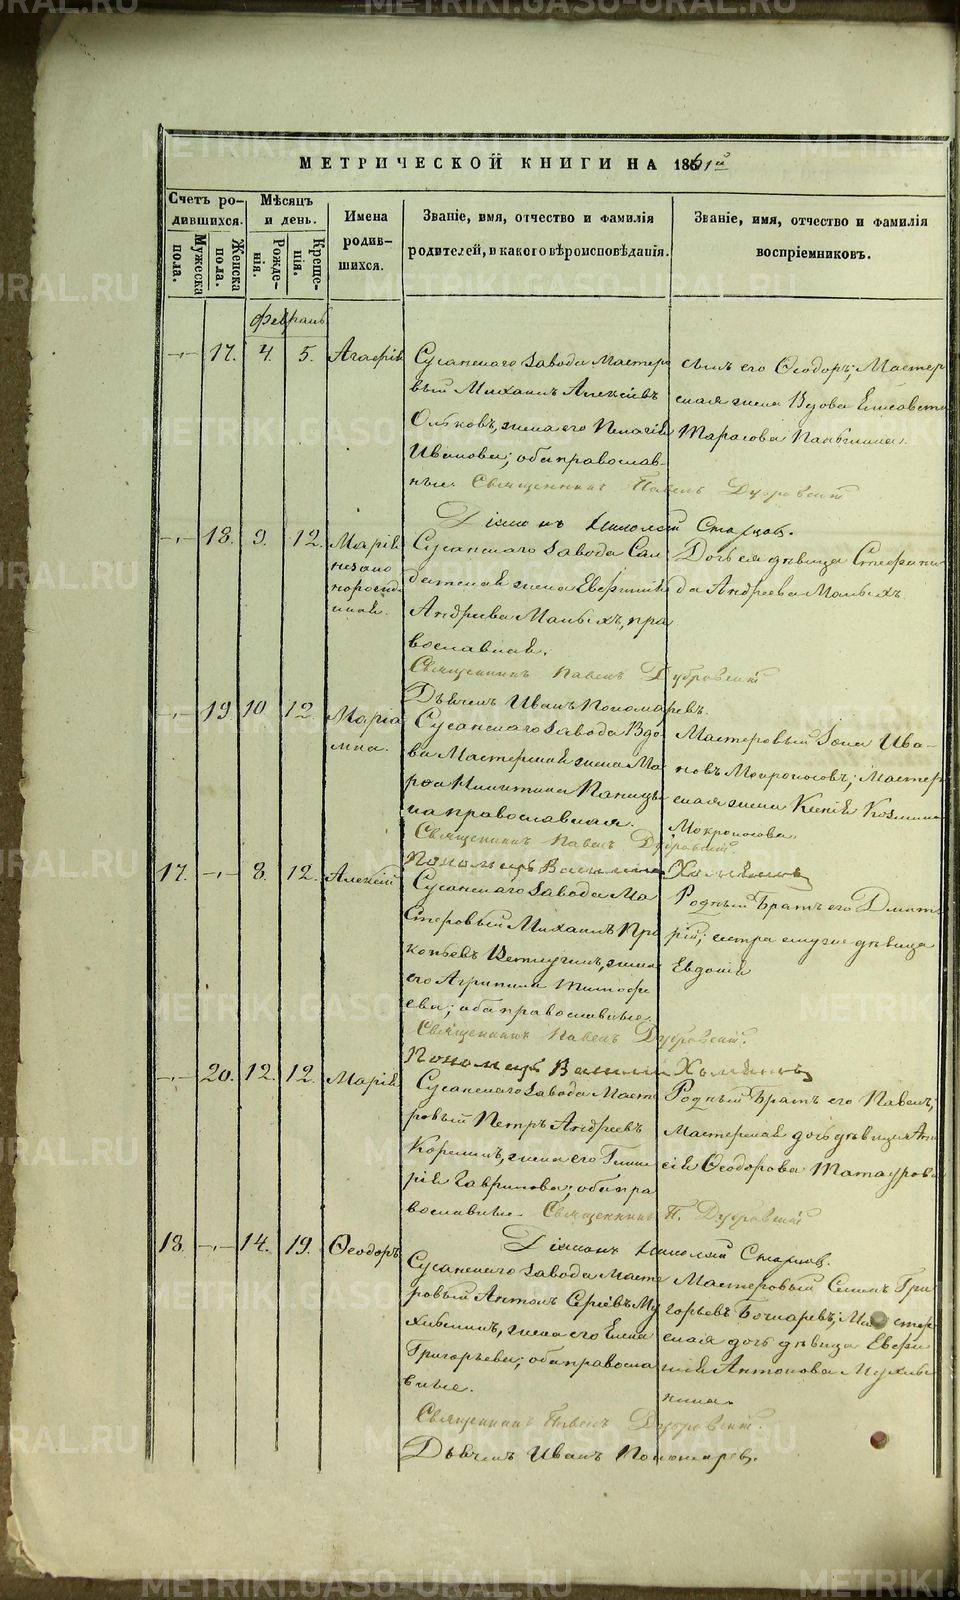 МЕТРИЧЕСКОЙ КНИГИ НА 1861й
Счетъ ро-
дившихся.
Мужеска
пола.
Женска
пола.
Мѣсяцъ
и день.
Рожде-
нія.
Креще-
нія.
Имена
родив-
шихся.
Званіе, имя, отчество и фамилія
родителей, и какого вѣроисповѣданія.
Званіе, имя, отчество и фамилія
воспріемниковъ.
Февраль
17. 4. 5. Агафія
Сусанскаго завода Мастеро
вый Михаилъ Алексіевъ
Ольковъ, жена его Пелагія
Иванова; оба православ-
ные. Священникъ Павелъ Дубровскій
Діаконъ Николай Старцов.
сынъ его Ѳеодоръ; Мастер
ская жена Вдова Елисавета
Тарасова
18. 9. 12. Марія
незако
норожд
нная.
Сусанскаго завода Сол
датская жена Евфимія
Андреева Малыхъ, пра
вославная.
Священникъ Павелъ Дубровскій
Дьячекъ Иванъ Пономаревъ.
Дочь ея дѣвица Стефани
да Андреева Малыхъ
19 10 12. Маріа
мна.
Сусанскаго завода Вдо
ва Мастерская жена Ма
рѳа Никитина
на православная.
Священникъ Павелъ Дубровскій
Пономарь Василій
Мастеровый Іона Ива-
новъ Мокроносовъ; Мастер
ская жена Ксенія Козмина
Мокроносова
17. 8. 12. Алексій
Сусанскаго завода Ма
стеровый Михаилъ Про
копьевъ Ветлугинъ, жена
его Агрипина Тимофе
ева; оба православные.
Священникъ Павелъ Дубровскій.
Пономарь Василій
Родный Братъ его Димит
рій; сестра ему же дѣвица
Евдокія
20. 12. 12. Марія
Сусанскаго завода Масте
ровый Петръ Андреевъ
Корелинъ, жена его Глике
рія Гаврилова; оба пра
вославные. Священникъ П. Дубровскій
Діаконъ Николай Старцов.
Родный Братъ его Павелъ;
Мастерская дочь дѣвица
Ѳеодорова Татаурова
18. 14. 19. Ѳеодоръ
Сусанскаго завода Масте
ровый Антонъ Сергѣевъ Му
хлынинъ, жена его Елена
Григорьева; оба правосла
вные.
Священникъ Павелъ Дубровскій.
Дьячекъ Иванъ Пономарев.
Мастеровый Семенъ Гри
горьевъ Бочкаревъ; Мастер
ская дочь дѣвица Евфи
мія Антонова Мухлы
нина.
METRIKI.GASO-URAL.RU